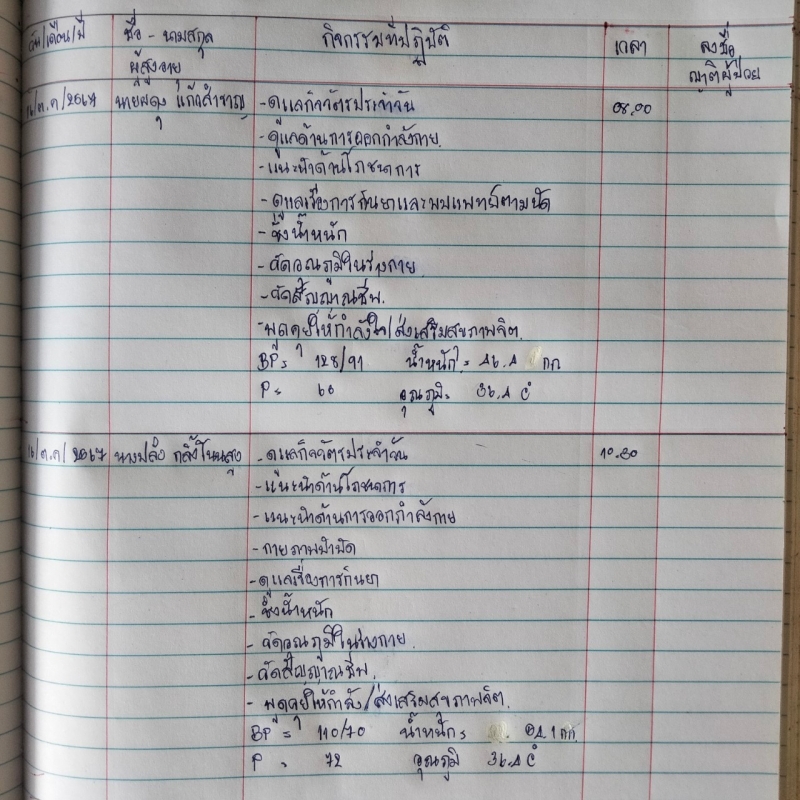 วัน/เดือน/ปี ชื่อ - นามสกุล กิจกรรมที่ปฏิบัติ เวลา ลงชื่อ
ผู้สูงอายุ ญาติผู้ป่วย
16/ต.ค/2567 นายผดุง แก้วสำราญ - ดูแลกิจวัตรประจำวัน 08.00
- ดูแลด้านการออกกำลังกาย
- แนะนำด้านโภชนาการ
- ดูแลเรื่องการกินยาและพบแพทย์ตามนัด
- ชั่งน้ำหนัก
- วัดอุณภูมิในร่างกาย
- วัดสัญญาณชีพ
- พูดคุยให้กำลังใจ/ส่งเสริมสุขภาพจิต
BP = 128/91 น้ำหนัก = กก
P = 66 อุณภูมิ =
16/ต.ค/2567 - ดูแลกิจวัตรประจำวัน
- แนะนำด้านโภชนาการ
- แนะนำด้านการออกกำลังกาย
- กายภาพบำบัด
- ดูแลเรื่องการกินยา
- ชั่งน้ำหนัก
- วัดอุณภูมิในร่างกาย
- วัดสัญญาณชีพ
- พูดคุยให้กำลัง/ส่งเสริมสุขภาพจิต
BP = 110/70 น้ำหนัก = กก
P = 72 อุณภูมิ